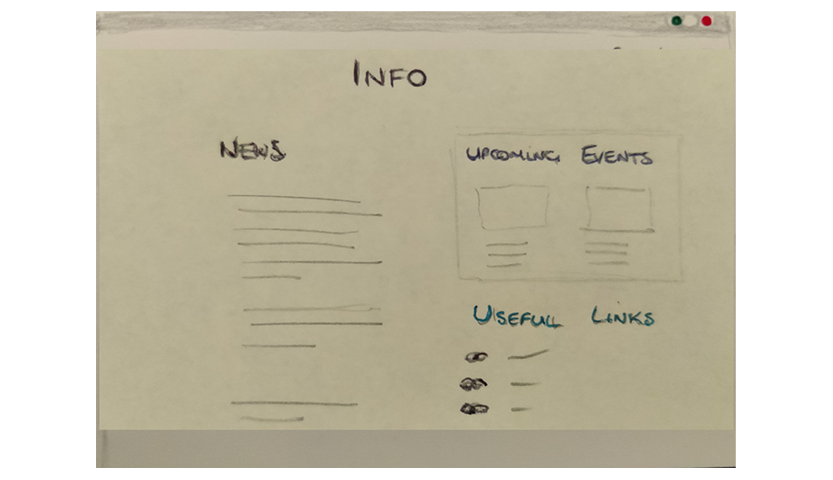 INFO
NEWS
UPCOMING EVENTS
USEFULL LINKS